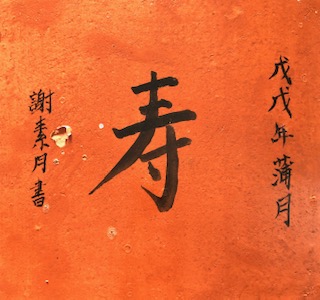 戊戌年蒲月
寿
謝素月書